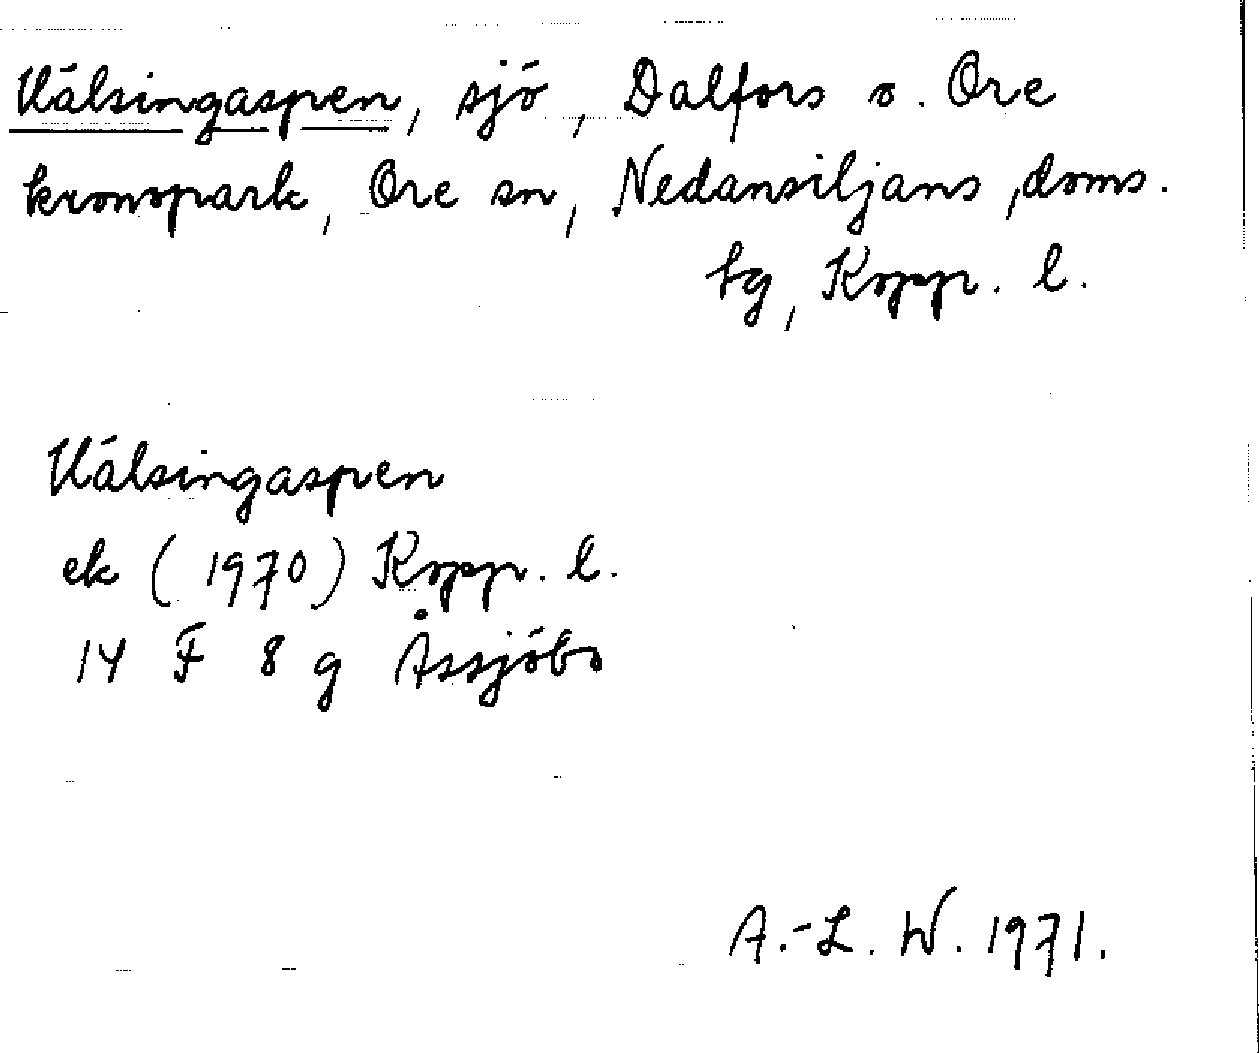 Hälsingaspen, sjö, Dalfors o. Ore
kronopark, Ore sn, Nedansiljans doms.
tg, Kopp. l.
Hälsingaspen
ek (1970) Kopp. l.
14 F 8 g Åssjöbo
A.-L. W. 1971.